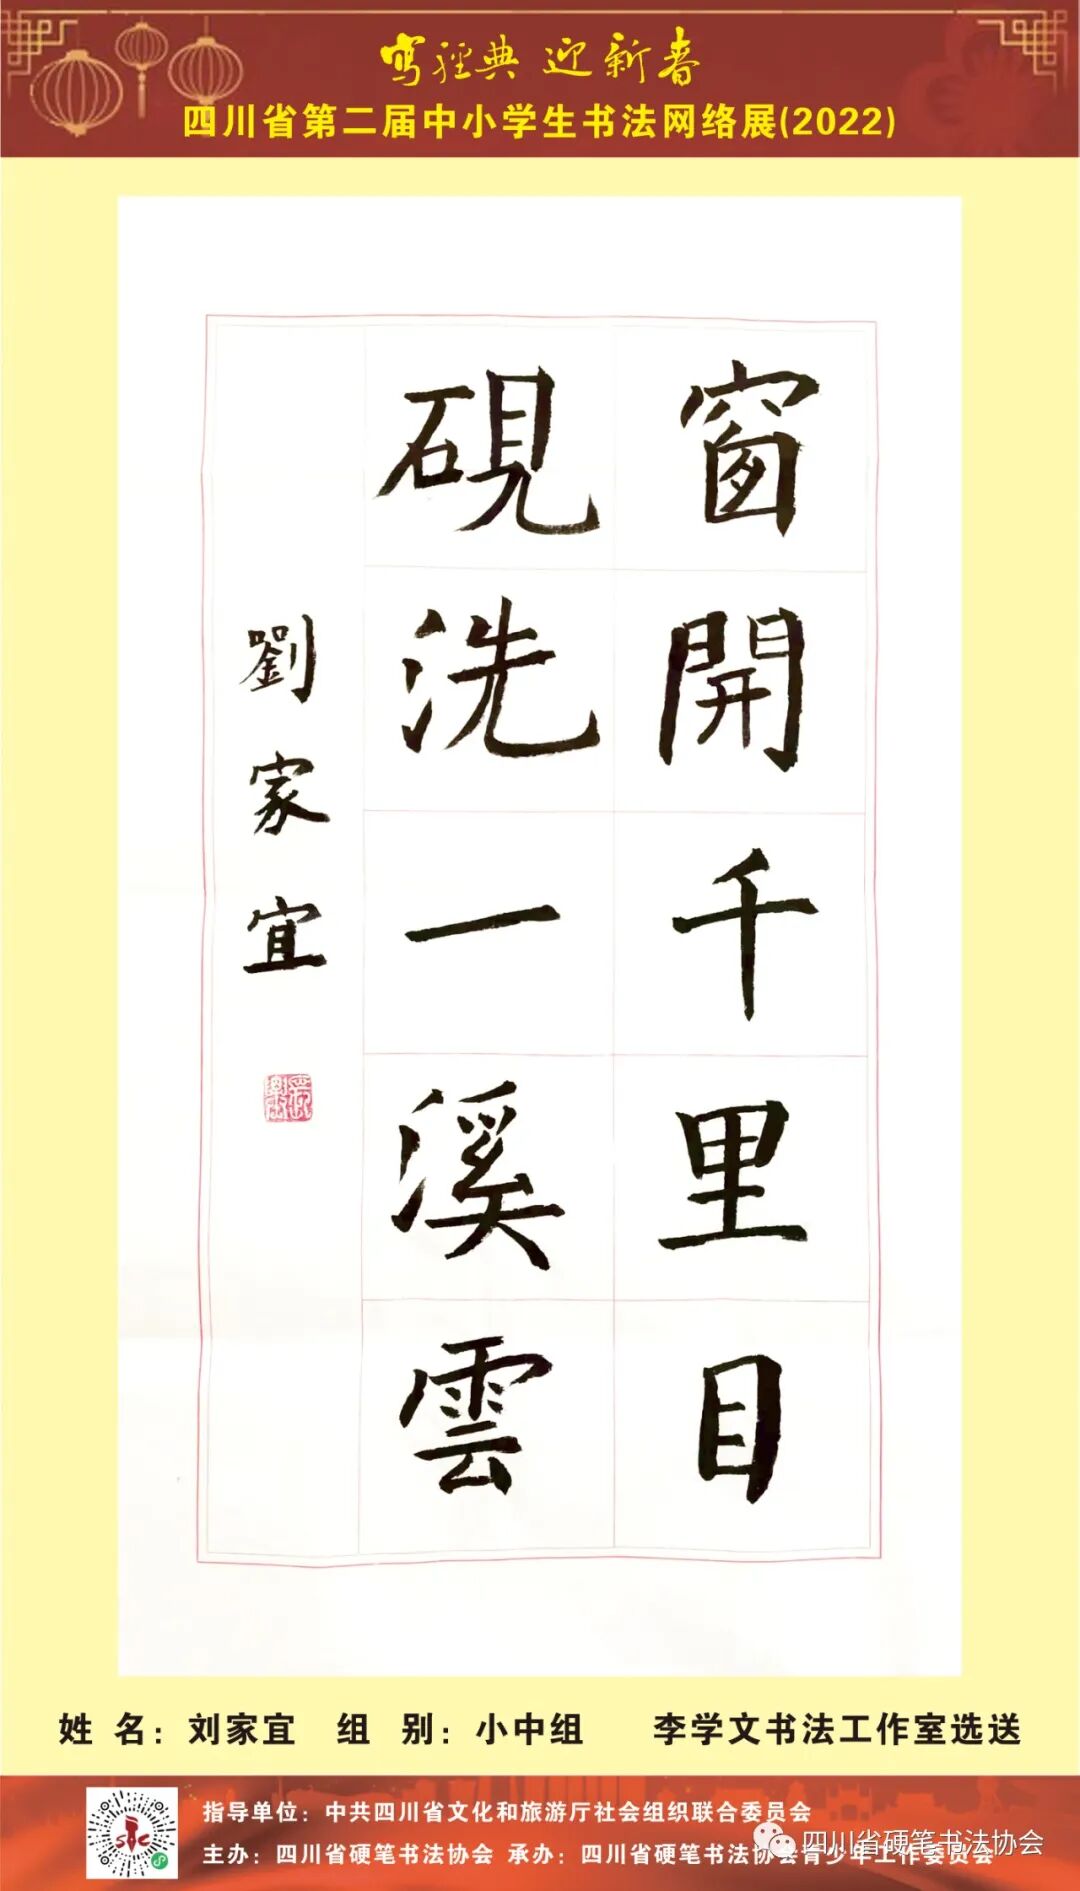 写经典 迎新春
四川省第二届中小学生书法网络展(2022)
窗開千里目
硯洗一溪雲
劉家宜
姓 名：刘家宜 组 别：小中组 李学文书法工作室选送
指导单位：中共四川省文化和旅游厅社会组织联合委员会
主办：四川省硬笔书法协会 承办：四川省硬笔书法协会青少年工作委员会
四川省硬笔书法协会